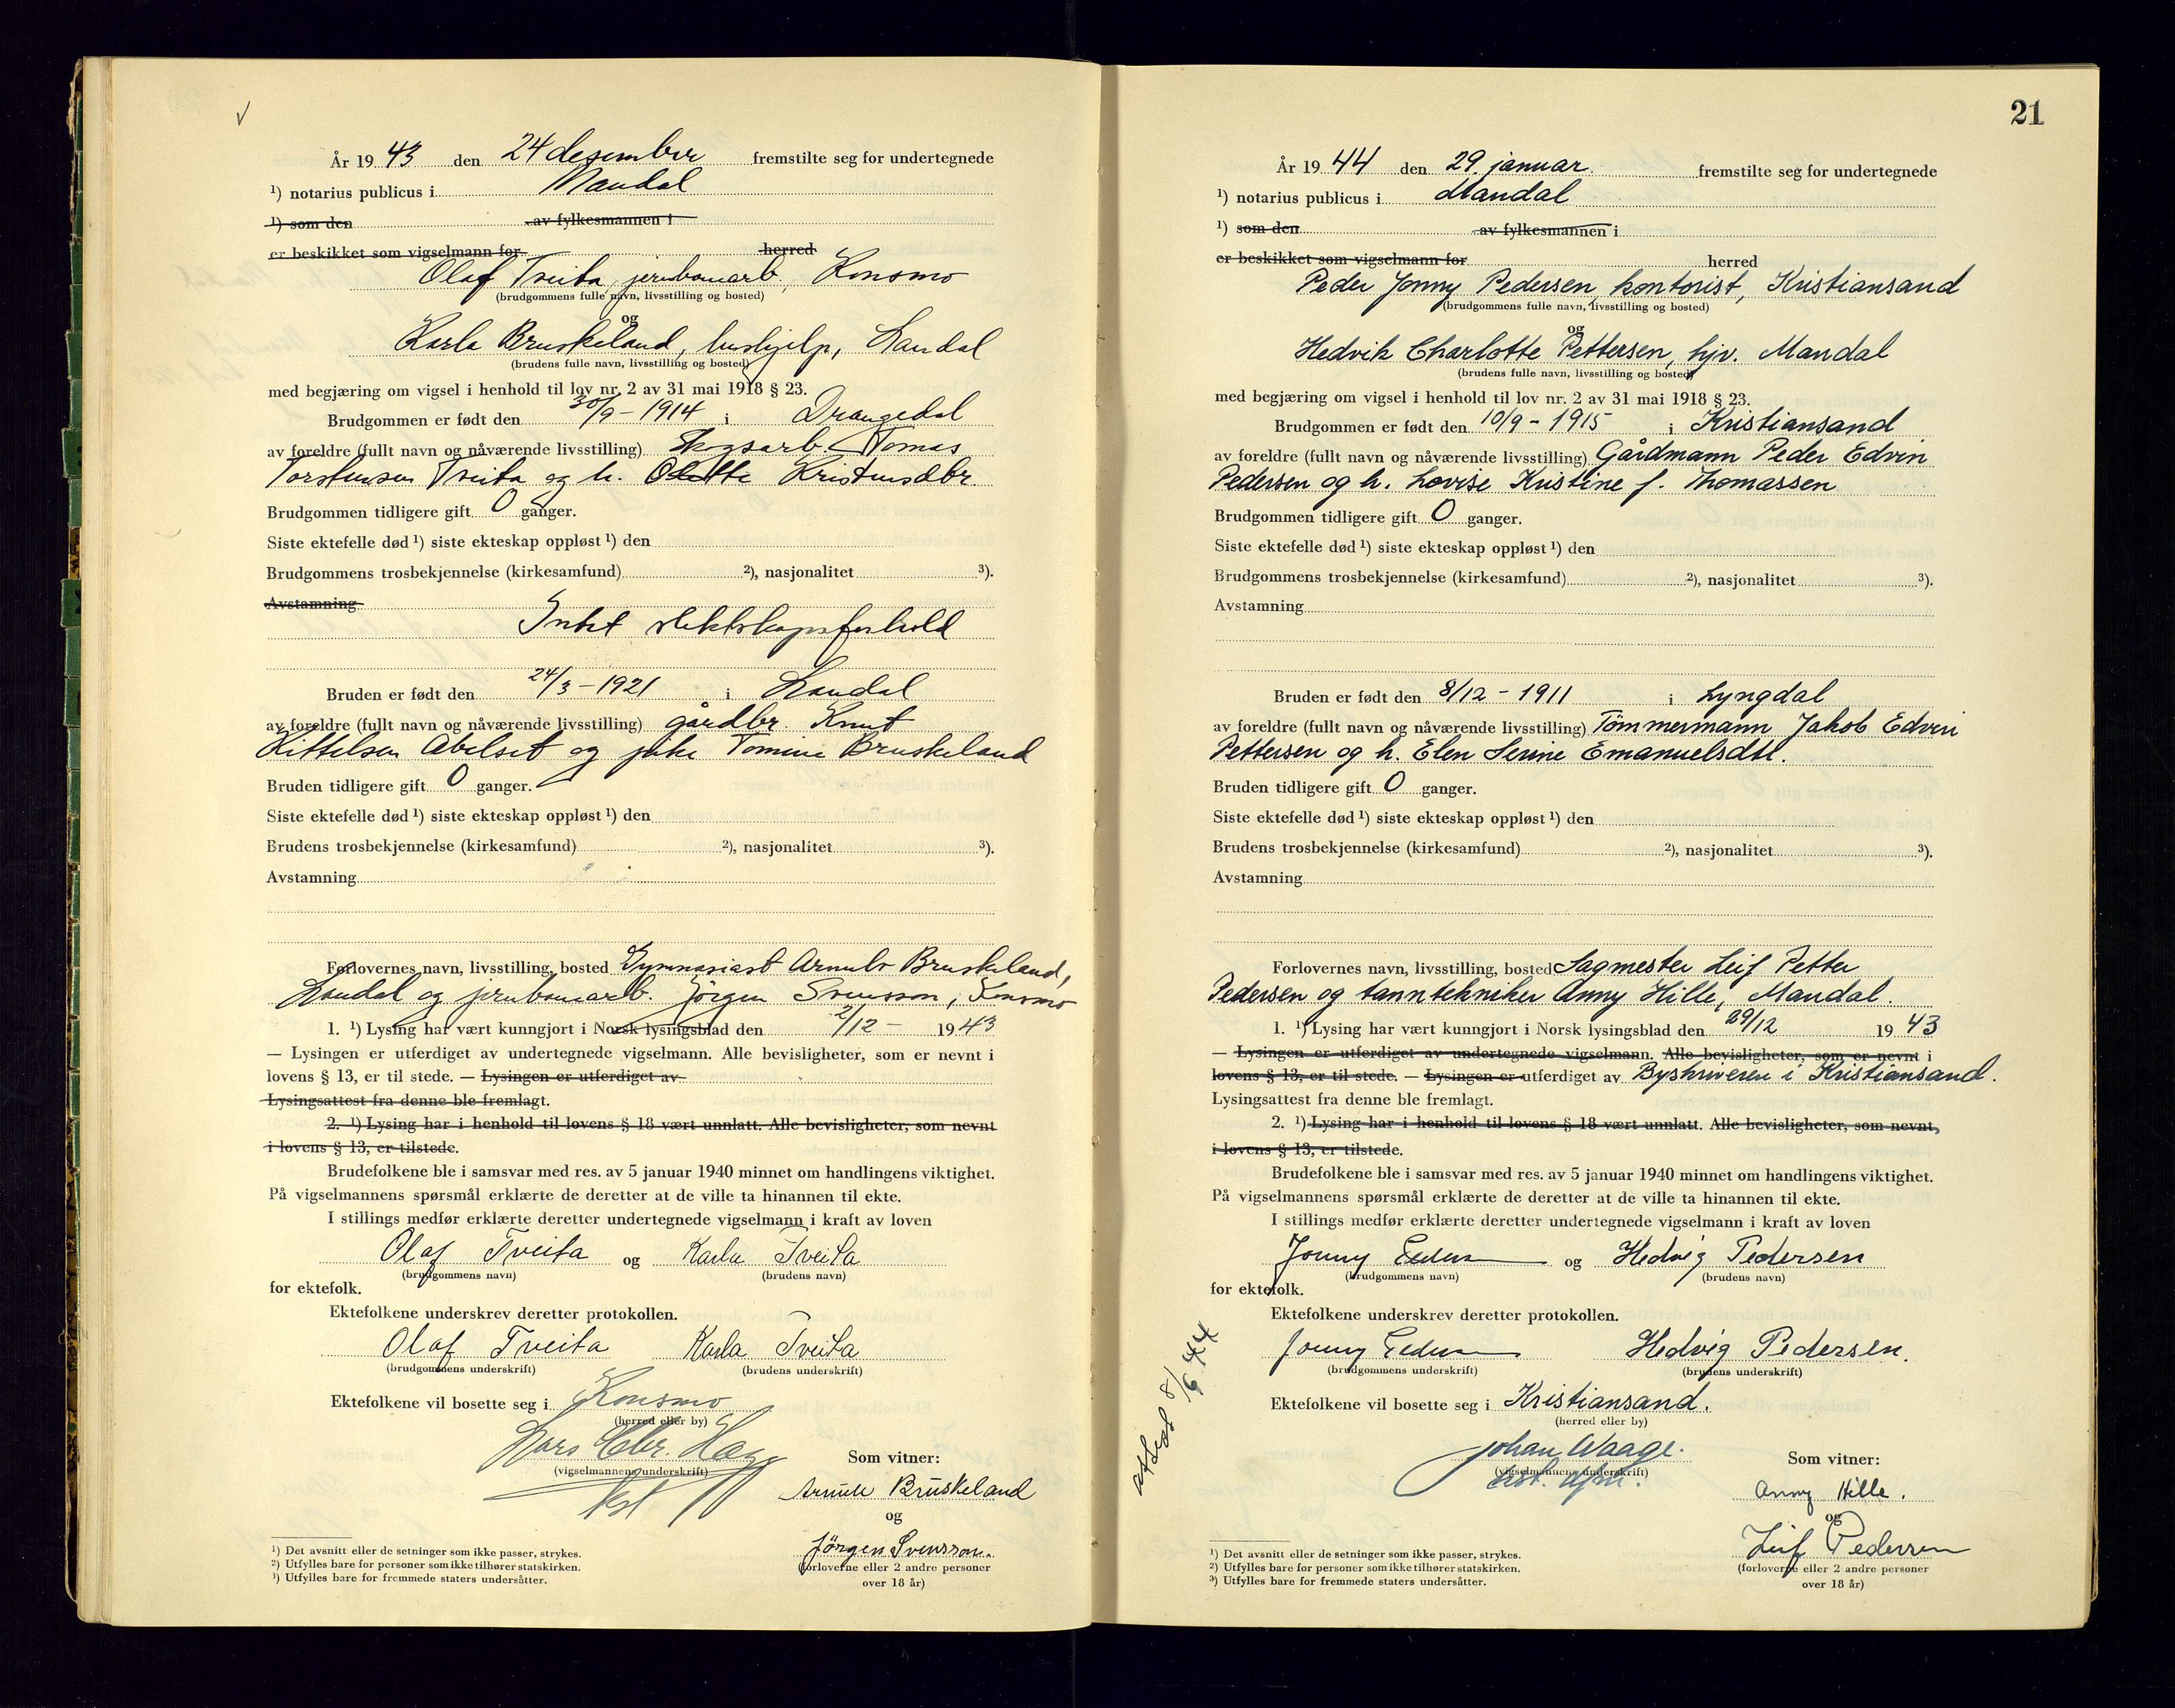 År 19 43 den 24 desember fremstilte seg for undertegnede
¹) notarius publicus i Mandal
¹) som den av fylkesmannen i
er beskikket som vigselmann for herred
Olaf Tveita, jernbanearb., Konsmo
(brudgommens fulle navn, livsstilling og bosted)
og
Karla Bruskeland, hushjelp, Laudal
(brudens fulle navn, livsstilling og bosted)
med begjæring om vigsel i henhold til lov nr. 2 av 31 mai 1918 § 23.
Brudgommen er født den 30/9 - 1914 i Drangedal
av foreldre (fullt navn og nåværende livsstilling) Skogsarb. Tomas
Torstensen Tveita og h. Olette Kristensdtr.
Brudgommen tidligere gift 0 ganger.
Siste ektefelle død ¹) siste ekteskap oppløst ¹) den
Brudgommens trosbekjennelse (kirkesamfund) ²), nasjonalitet ³).
Avstamning
Intet slektskapsforhold
Bruden er født den 24/3 - 1921 i Laudal
av foreldre (fullt navn og nåværende livsstilling) gårdbr. Knut
Kittelsen Abelset og pike Tomine Bruskeland
Bruden tidligere gift 0 ganger.
Siste ektefelle død ¹) siste ekteskap oppløst ¹) den
Brudens trosbekjennelse (kirkesamfund) ²), nasjonalitet ³).
Avstamning
Forlovernes navn, livsstilling, bosted Gymnasiast Arnulv Bruskeland,
Laudal og jernbanearb. Jörgen Svensson, Konsmo
1. ¹) Lysing har vært kunngjort i Norsk lysingsblad den 2/12 - 19 43
— Lysingen er utferdiget av undertegnede vigselmann. Alle bevisligheter, som er nevnt i
lovens § 13, er til stede. — Lysingen er utferdiget av
Lysingsattest fra denne ble fremlagt.
2. ¹) Lysing har i henhold til lovens § 18 vært unnlatt. Alle bevisligheter, som nevnt
i lovens § 13, er tilstede.
Brudefolkene ble i samsvar med res. av 5 januar 1940 minnet om handlingens viktighet.
På vigselmannens spørsmål erklærte de deretter at de ville ta hinannen til ekte.
I stillings medfør erklærte deretter undertegnede vigselmann i kraft av loven
Olaf Tveita og Karla Tveita
(brudgommens navn) (brudens navn)
for ektefolk.
Ektefolkene underskrev deretter protokollen.
Olaf Tveita Karla Tveita
(brudgommens underskrift) (brudens underskrift)
Ektefolkene vil bosette seg i Konsmo
(herred eller by)
Lars Chr.
(vigselmannens underskrift)
Som vitner:
Bruskeland
og
Jörgen Svensson.
(forloverne eller 2 andre personer
over 18 år)
¹) Det avsnitt eller de setninger som ikke passer, strykes.
²) Utfylles bare for personer som ikke tilhører statskirken.
³) Utfylles bare for fremmede staters undersåtter.
21
År 19 44 den 29. januar fremstilte seg for undertegnede
¹) notarius publicus i Mandal
¹) som den av fylkesmannen i
er beskikket som vigselmann for herred
Peder Jonny Pedersen, kontorist, Kristiansand
(brudgommens fulle navn, livsstilling og bosted)
og
Hedvik Charlotte Pettersen, hjv. Mandal
(brudens fulle navn, livsstilling og bosted)
med begjæring om vigsel i henhold til lov nr. 2 av 31 mai 1918 § 23.
Brudgommen er født den 10/9 - 1915 i Kristiansand
av foreldre (fullt navn og nåværende livsstilling) Gårdmann Peder Edvin
Pedersen og h. Lovise Kristine f. Thomassen
Brudgommen tidligere gift 0 ganger.
Siste ektefelle død ¹) siste ekteskap oppløst ¹) den
Brudgommens trosbekjennelse (kirkesamfund) ²), nasjonalitet ³).
Avstamning
Bruden er født den 8/12 - 1911 i Lyngdal
av foreldre (fullt navn og nåværende livsstilling) Tömmermann Jakob Edvin
Pettersen og h. Elen Serine Emanuelsdtt.
Bruden tidligere gift 0 ganger.
Siste ektefelle død ¹) siste ekteskap oppløst ¹) den
Brudens trosbekjennelse (kirkesamfund) ²), nasjonalitet ³).
Avstamning
Forlovernes navn, livsstilling, bosted Sagmester Leif Petter
Pedersen og tanntekniker Anny Hille, Mandal.
1. ¹) Lysing har vært kunngjort i Norsk lysingsblad den 29/12 19 43
— Lysingen er utferdiget av undertegnede vigselmann. Alle bevisligheter, som er nevnt i
lovens § 13, er til stede. — Lysingen er utferdiget av Byskriveren i Kristiansand.
Lysingsattest fra denne ble fremlagt.
2. ¹) Lysing har i henhold til lovens § 18 vært unnlatt. Alle bevisligheter, som nevnt,
i lovens § 13, er tilstede.
Brudefolkene ble i samsvar med res. av 5 januar 1940 minnet om handlingens viktighet.
På vigselmannens spørsmål erklærte de deretter at de ville ta hinannen til ekte.
I stillings medfør erklærte deretter undertegnede vigselmann i kraft av loven
Jonny Pedersen og Hedvig Pedersen
(brudgommens navn) (brudens navn)
for ektefolk.
Ektefolkene underskrev deretter protokollen.
Jonny Pedersen Hedvig Pedersen.
(brudgommens underskrift) (brudens underskrift)
Ektefolkene vil bosette seg i Kristiansand.
(herred eller by)
Johan Waage.
(vigselmannens underskrift)
Som vitner:
Anny Hille.
og
Leif Pedersen
(forloverne eller 2 andre personer
over 18 år)
¹) Det avsnitt eller de setninger som ikke passer, strykes.
²) Utfylles bare for personer som ikke tilhører statskirken.
³) Utfylles bare for fremmede staters undersåtter.
8/6 44